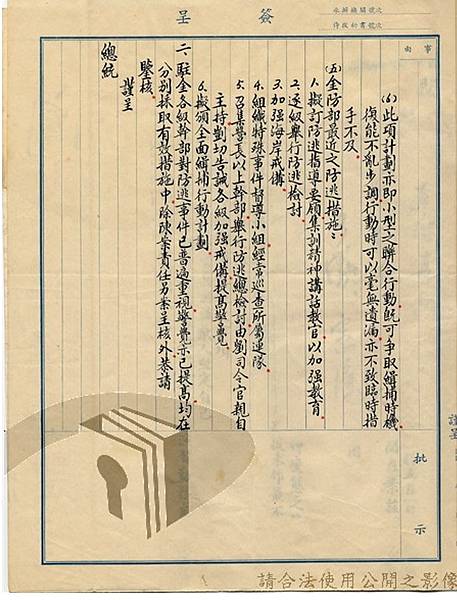 簽呈
承辦機關號次
侍秘收書號次
事由
批示
(6)此項計劃亦即小型之聯合行動既可爭取緝捕時機
復能不亂步調行動時可以毫無遺漏亦不致臨時措
手不及
(五)金防部最近之防逃措施：
1.擬訂防逃指導要領集訓精神講話教官以加强教育
2.逐級舉行防逃檢討
3.加强海岸戒備
4.組織特殊事件督導小組經常巡查所屬連隊
5.召集營長以上幹部舉行防逃總檢討由劉司令官親自
主持劉切告誡各級加强戒備提高警覺
6.擬頒全面緝捕行動計劃
二、駐金各級幹部對防逃事件已普遍重視警覺亦已提高均在
分別採取有效措施中除陳案責任另案呈核外恭請
鑒核
謹呈
總統
謹呈
請合法使用公開之影像